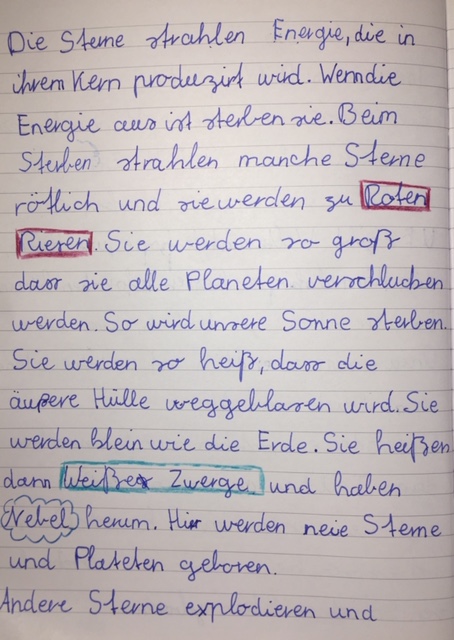 Die Sterne strahlen Energie, die in
ihrem Kern produzirt wird. Wenn die
Energie aus ist sterben sie. Beim
Sterben strahlen manche Sterne
rötlich und sie werden zu Roten
Riesen. Sie werden so groß
dass sie alle Planeten verschlucken
werden. So wird unsere Sonne sterben.
Sie werden so heiß, dass die
äußere Hülle weggeblasen wird. Sie
werden klein wie die Erde. Sie heißen
dann Weiße Zwerge und haben
Nebel herum. Hir werden neie Sterne
und Plateten geboren.
Andere Sterne explodieren und